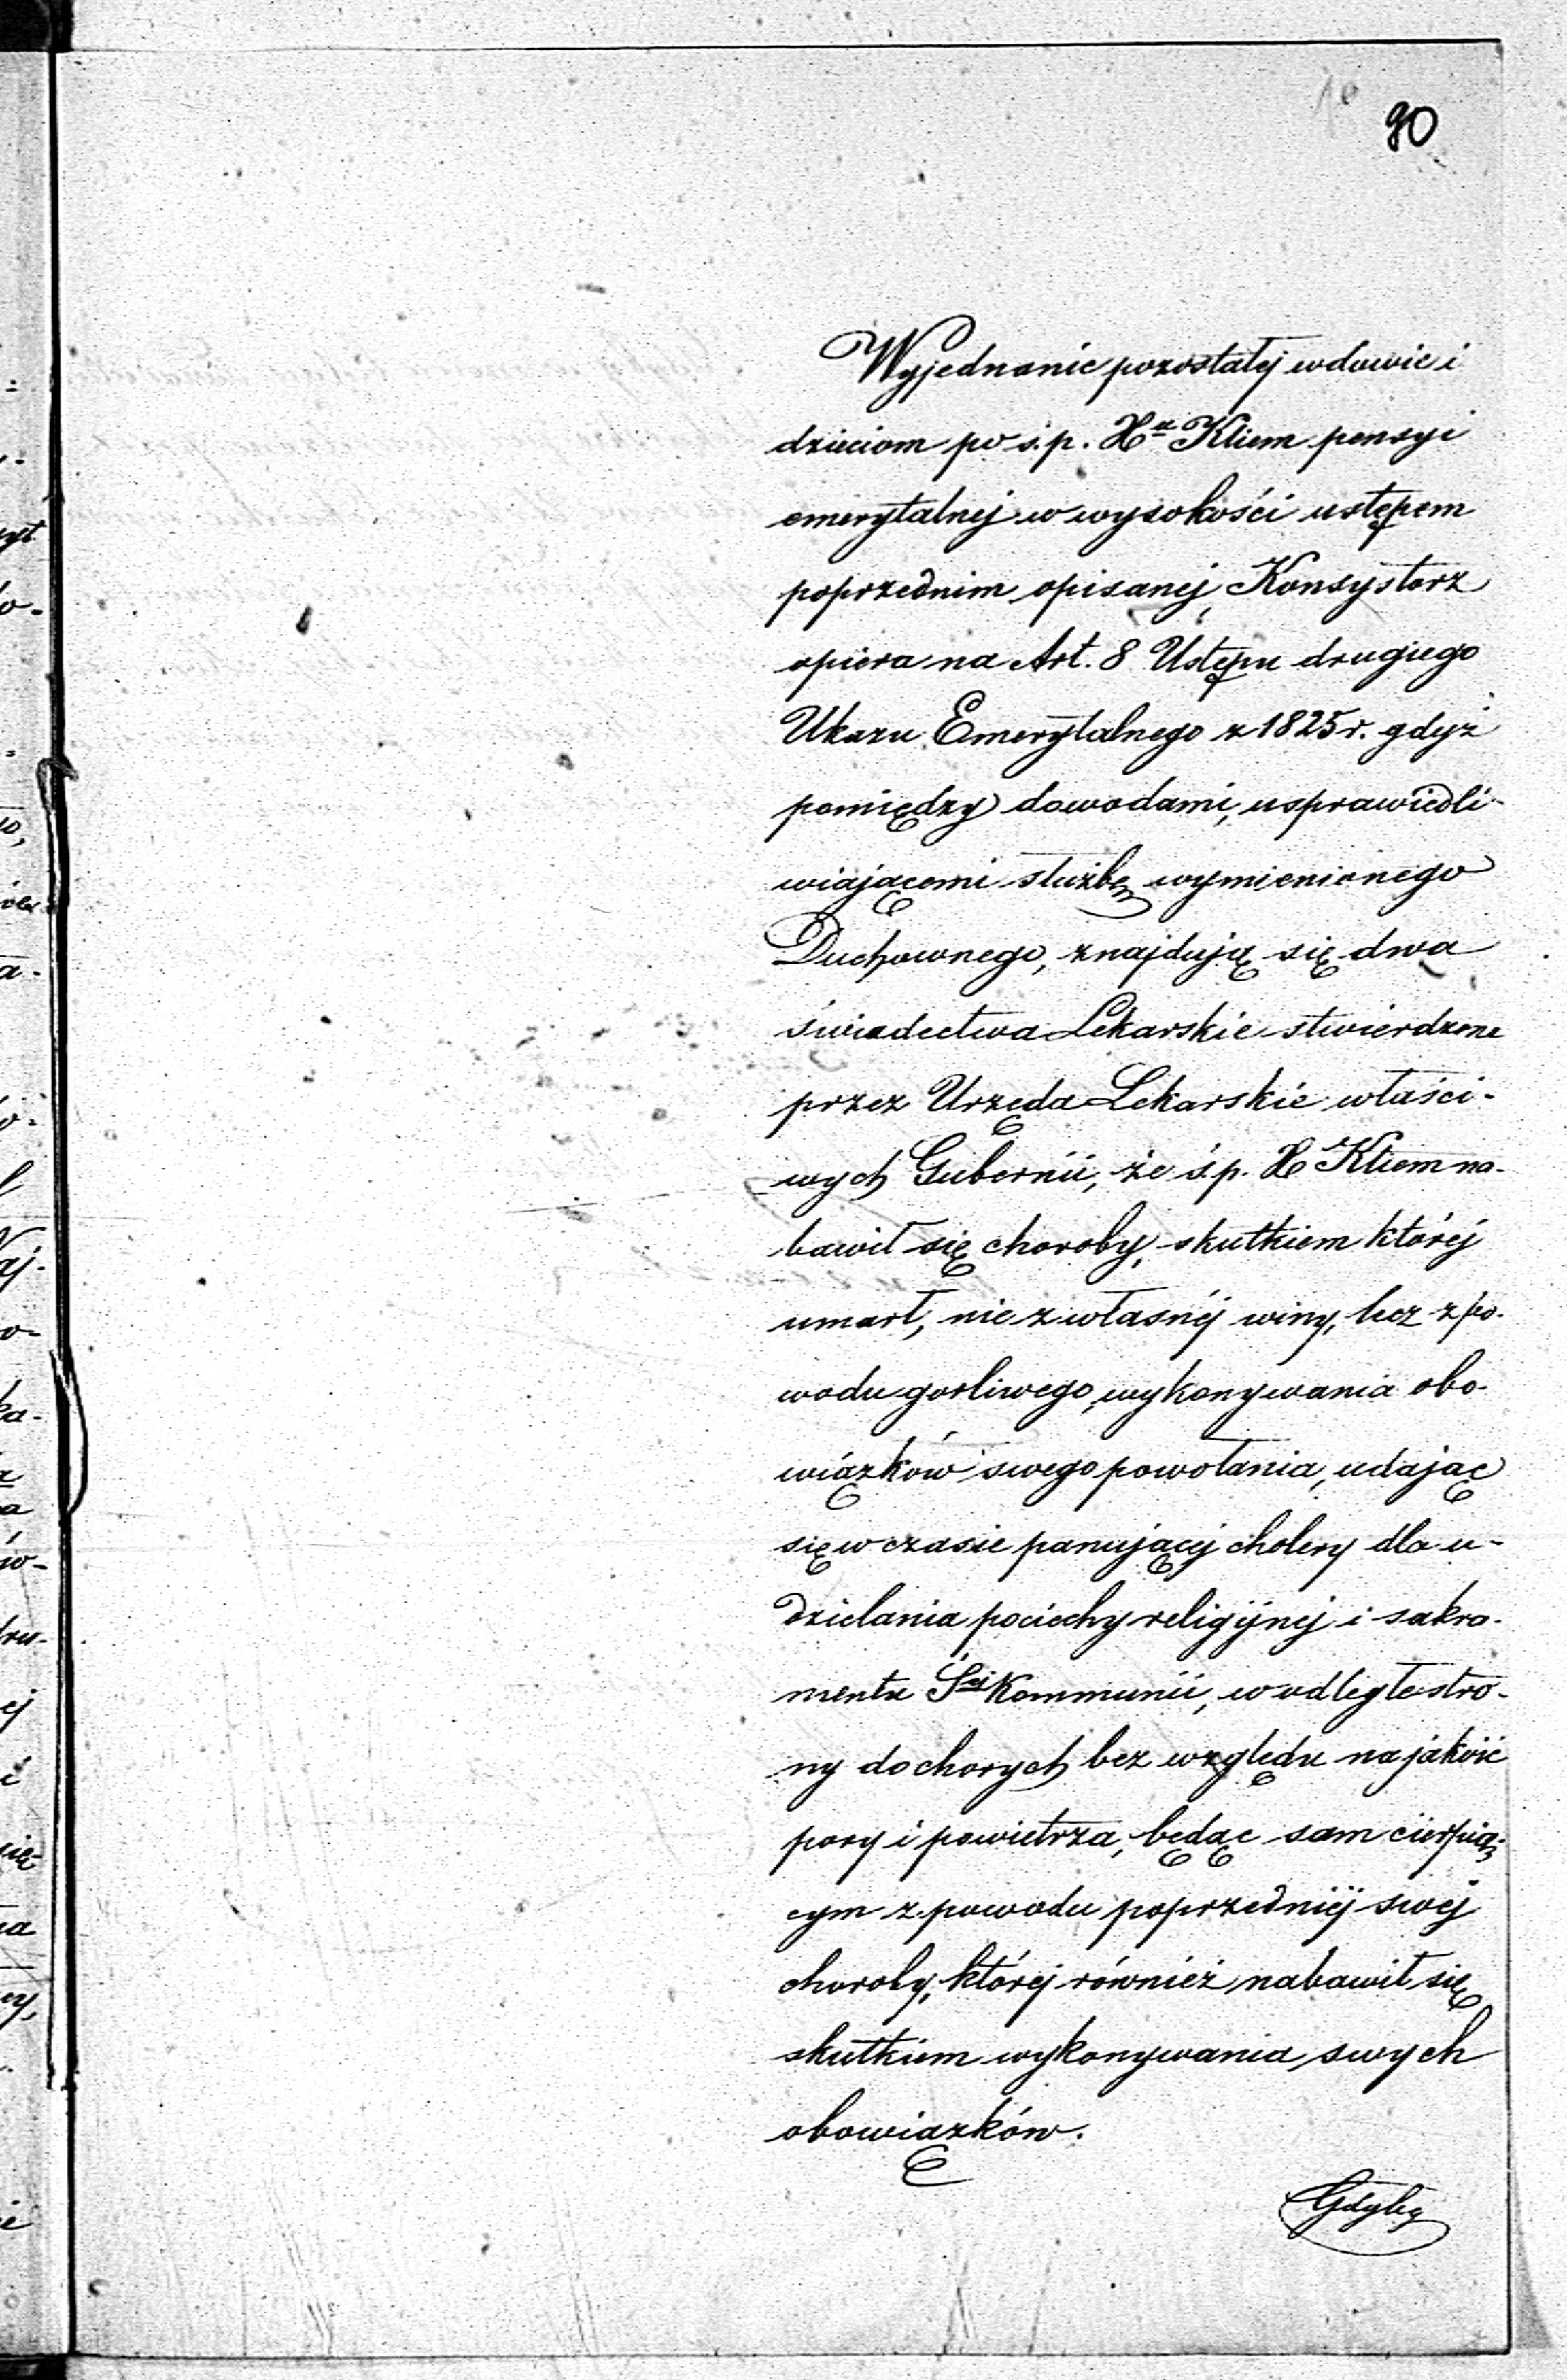 90
Wyjednanie pozostałej wdowie i
dzieciom po ś.p. Kliem pensyi
emerytalnej w wysokości ustępem
poprzednim opisanej, Konsystorz
opiera na Art. 8 Ustępu drugiego
Ukazu Emerytalnego z 1825 r. gdyż
pomiędzy dowodami, usprawiedli-
wiającemi służbę wymienionego
Duchownego, znajdują się dwa
świadectwa Lekarskie stwierdzone
przez Urzęda Lekarskie właści-
wych Gubernii, że ś.p. Kliem na-
bawił się choroby, skutkiem której
umarł, nie z własnéj winy, lecz z po-
wodu gorliwego wykonywania obo-
wiązków swego powołania, udając
się w czasie panującej cholery dla u-
dzielania pociechy religijnej i sakra-
mentu Śej Kommunii, w odległe stro-
ny do chorych bez względu na jakość
pory i powietrza, będąc sam cierpią-
cym z powodu poprzedniéj swej
choroby, której również nabawił się
skutkiem wykonywania swych
obowiązków.
Gdyby